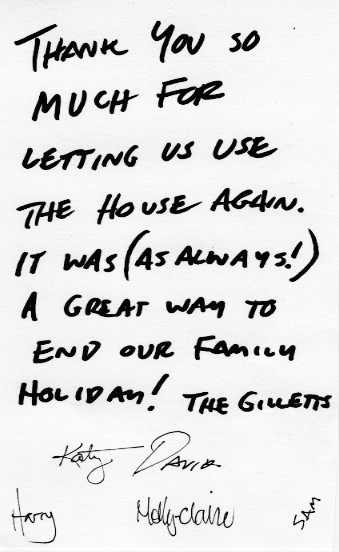 THANK YOU SO
MUCH FOR
LETTING US USE
THE HOUSE AGAIN.
IT WAS (AS ALWAYS!)
A GREAT WAY TO
END OUR FAMILY
HOLIDAY! THE GILLETTS
Katy DAVID
Harry Molly-Claire SAM